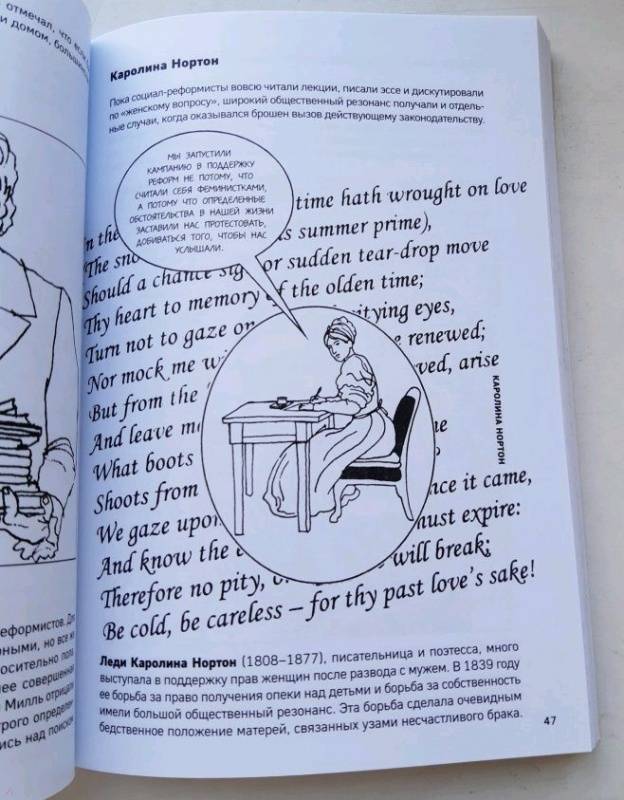 отмечал, что
и домом,
Каролина Нортон
Пока социал-реформисты вовсю читали лекции, писали эссе и дискутировали
по «женскому вопросу», широкий общественный резонанс получали и отдель-
ные случаи, когда оказывался брошен вызов действующему законодательству.
МЫ ЗАПУСТИЛИ
КАМПАНИЮ В ПОДДЕРЖКУ
РЕФОРМ НЕ ПОТОМУ, ЧТО
СЧИТАЛИ СЕБЯ ФЕМИНИСТКАМИ,
А ПОТОМУ ЧТО ОПРЕДЕЛЕННЫЕ
ОБСТОЯТЕЛЬСТВА В НАШЕЙ ЖИЗНИ
ЗАСТАВИЛИ НАС ПРОТЕСТОВАТЬ,
ДОБИВАТЬСЯ ТОГО, ЧТОБЫ НАС
УСЛЫШАЛИ.
In the time hath wrought on love
The summer prime),
Should a chance or sudden tear-drop move
Thy heart to memory of the olden time;
Turn not to gaze on eyes,
Nor mock me renewed;
But from the arise
And leave
What boots
Shoots from it came,
We gaze must expire:
And know the will break;
Therefore no pity,
Be cold, be careless – for thy past love's sake!
КАРОЛИНА НОРТОН
Леди Каролина Нортон (1808–1877), писательница и поэтесса, много
выступала в поддержку прав женщин после развода с мужем. В 1839 году
ее борьба за право получения опеки над детьми и борьба за собственность
имели большой общественный резонанс. Эта борьба сделала очевидным
бедственное положение матерей, связанных узами несчастливого брака.
47
но все
совершенная
Милль
над